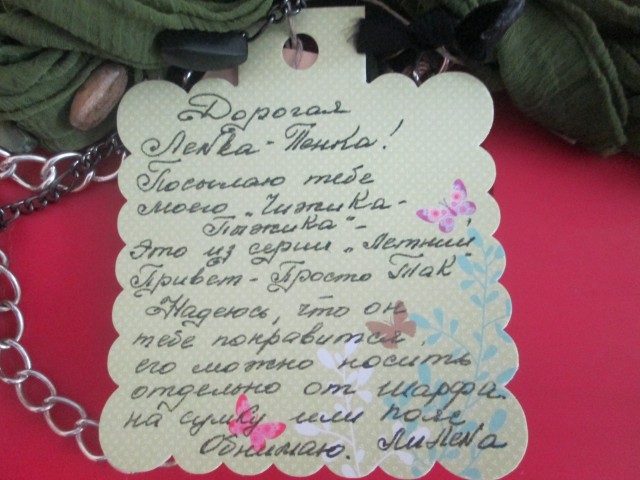 Дорогая
ЛеNка-Пенка!
Посылаю тебе
моего „Чижика-
Пыжика"-
это из серии „Летний
Привет-Просто Так"
Надеюсь, что он
тебе понравится,
его можно носить
отдельно от шарфа
на сумку или пояс
Обнимаю. ЛиLeNа